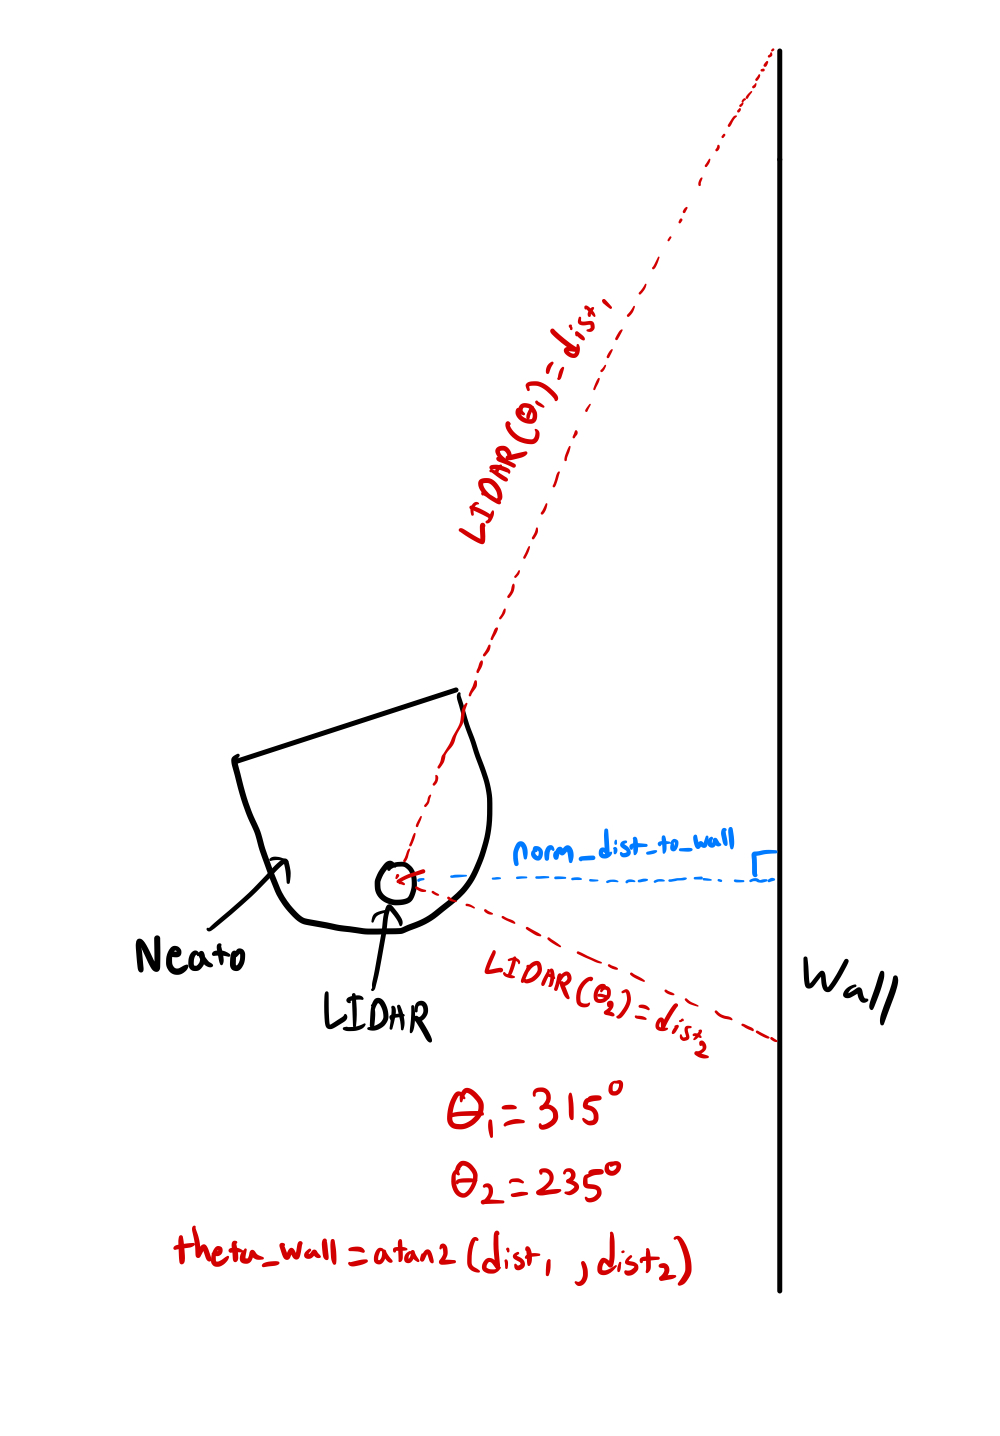 LIDAR(θ₁)=dist₁
norm_dist_to_wall
Neato
LIDAR
LIDAR(θ₂)=dist₂
Wall
θ₁=315°
θ₂=235°
theta_wall=atan2(dist₁,dist₂)